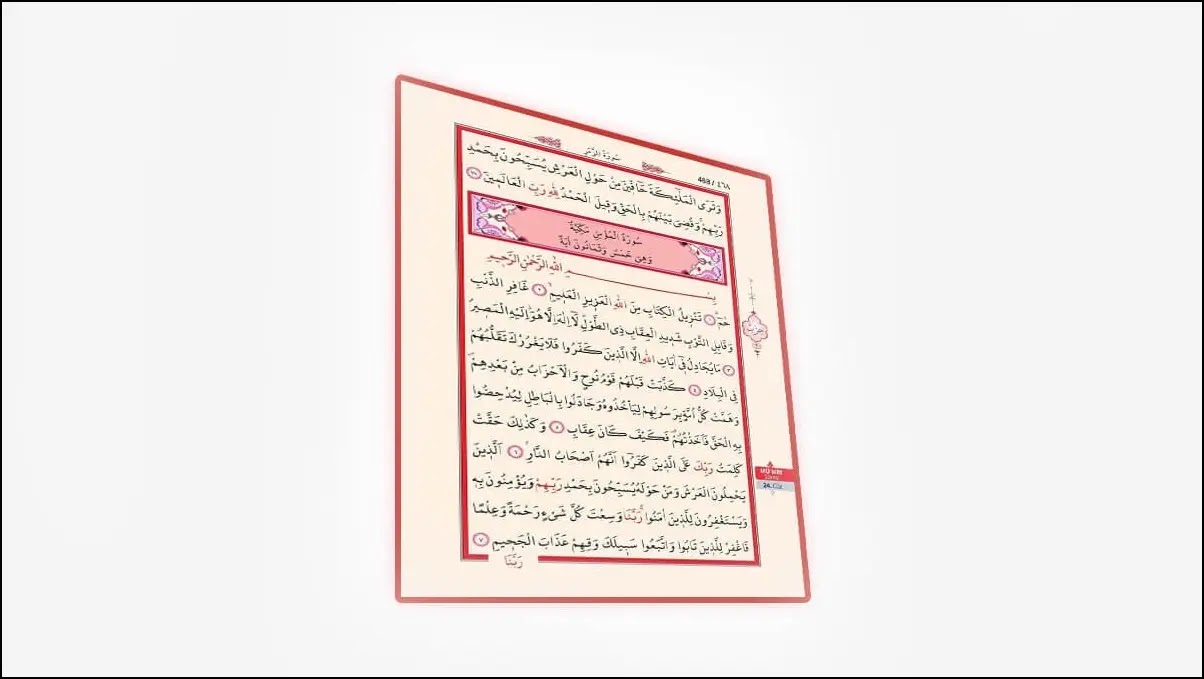 سُورَةُ الزُّمَرِ
468 / ٤٦٨
وَتَرَى الْمَلٰٓئِكَةَ حَٓافّ۪ينَ مِنْ حَوْلِ الْعَرْشِ يُسَبِّحُونَ بِحَمْدِ
رَبِّهِمْۚ وَقُضِيَ بَيْنَهُمْ بِالْحَقِّ وَق۪يلَ الْحَمْدُ لِلّٰهِ رَبِّ الْعَالَم۪ينَ ﴿٧٥﴾
سُورَةُ الْمُؤْمِنِ مَكِّيَّةٌ
وَهِيَ خَمْسٌ وَثَمَانُونَ اٰيَةً
بِسْمِ اللّٰهِ الرَّحْمٰنِ الرَّح۪يمِ
حٰمٓ ﴿١﴾ تَنْز۪يلُ الْكِتَابِ مِنَ اللّٰهِ الْعَز۪يزِ الْعَل۪يمِۙ ﴿٢﴾ غَافِرِ الذَّنْبِ
وَقَابِلِ التَّوْبِ شَد۪يدِ الْعِقَابِ ذِي الطَّوْلِۜ لَٓا اِلٰهَ اِلَّا هُوَۜ اِلَيْهِ الْمَص۪يرُ
﴿٣﴾ مَا يُجَادِلُ ف۪ٓي اٰيَاتِ اللّٰهِ اِلَّا الَّذ۪ينَ كَفَرُوا فَلَا يَغْرُرْكَ تَقَلُّبُهُمْ
فِي الْبِلَادِ ﴿٤﴾ كَذَّبَتْ قَبْلَهُمْ قَوْمُ نُوحٍ وَالْاَحْزَابُ مِنْ بَعْدِهِمْۖ
وَهَمَّتْ كُلُّ اُمَّةٍ بِرَسُولِهِمْ لِيَأْخُذُوهُ وَجَادَلُوا بِالْبَاطِلِ لِيُدْحِضُوا
بِهِ الْحَقَّ فَاَخَذْتُهُمْ۠ فَكَيْفَ كَانَ عِقَابِ ﴿٥﴾ وَكَذٰلِكَ حَقَّتْ
كَلِمَتُ رَبِّكَ عَلَى الَّذ۪ينَ كَفَرُٓوا اَنَّهُمْ اَصْحَابُ النَّارِۢ ﴿٦﴾ اَلَّذ۪ينَ
يَحْمِلُونَ الْعَرْشَ وَمَنْ حَوْلَهُ يُسَبِّحُونَ بِحَمْدِ رَبِّهِمْ وَيُؤْمِنُونَ بِه۪
وَيَسْتَغْفِرُونَ لِلَّذ۪ينَ اٰمَنُواۚ رَبَّنَا وَسِعْتَ كُلَّ شَيْءٍ رَحْمَةً وَعِلْمًا
فَاغْفِرْ لِلَّذ۪ينَ تَابُوا وَاتَّبَعُوا سَب۪يلَكَ وَقِهِمْ عَذَابَ الْجَح۪يمِ ﴿٧﴾
رَبَّنَا
حزب
MÜ'MİN
24. Cüz